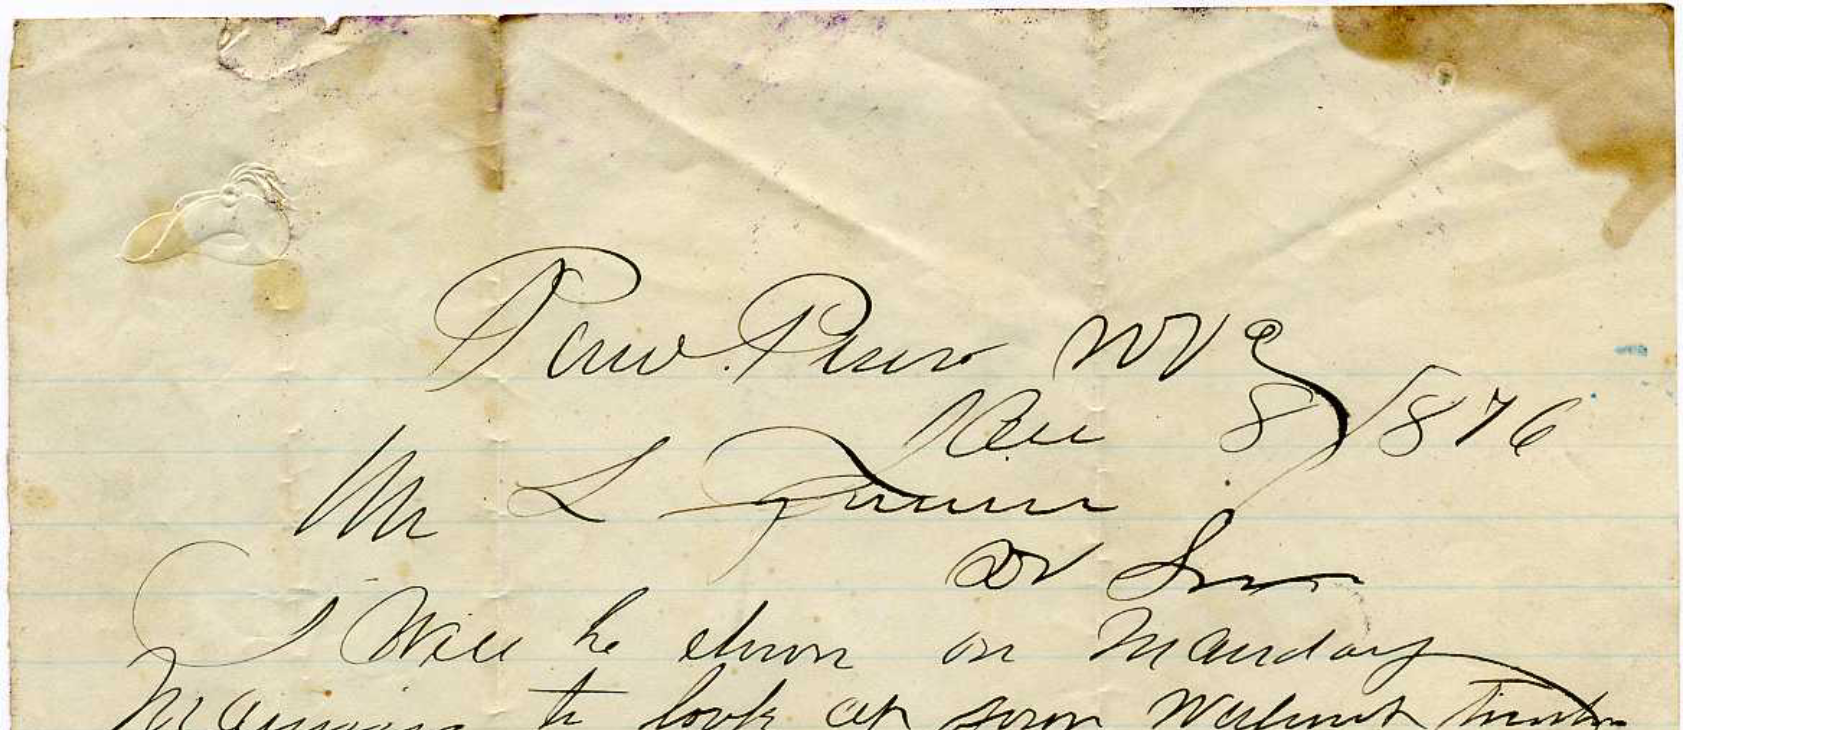 Paw Paw W Va
Dec 8 1876
Mr L
Dr Sir
I Will be down on Monday
Morning to look at your Walnut timber